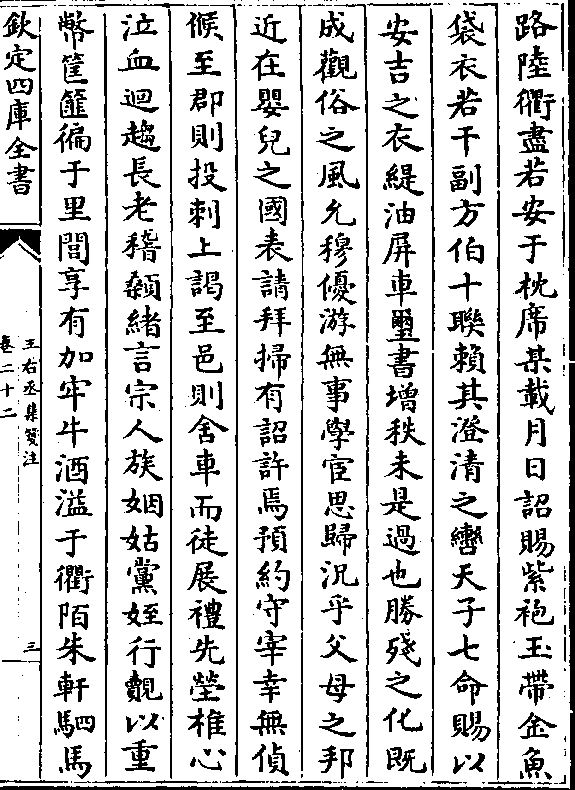 路陸衢盡若安于枕席某載月日詔賜紫袍玉帶金魚
袋衣若干副方伯十聯賴其澄清之轡天子七命賜以
安吉之衣緹油屏車璽書增秩未是過也勝殘之化既
成觀俗之風允穆優游無事學宦思歸況乎父母之邦
近在嬰兒之國表請拜掃有詔許焉預約守宰幸無偵
候至郡則投刺上謁至邑則舍車而徒展禮先塋椎心
泣血迴趨長老稽顙緒言宗人族姻姑黨姪行覿以重
幣筐篚徧于里閭享有加牢牛酒溢于衢陌朱軒駟馬
欽定四庫全書
王右丞集箋注
卷二十二
三